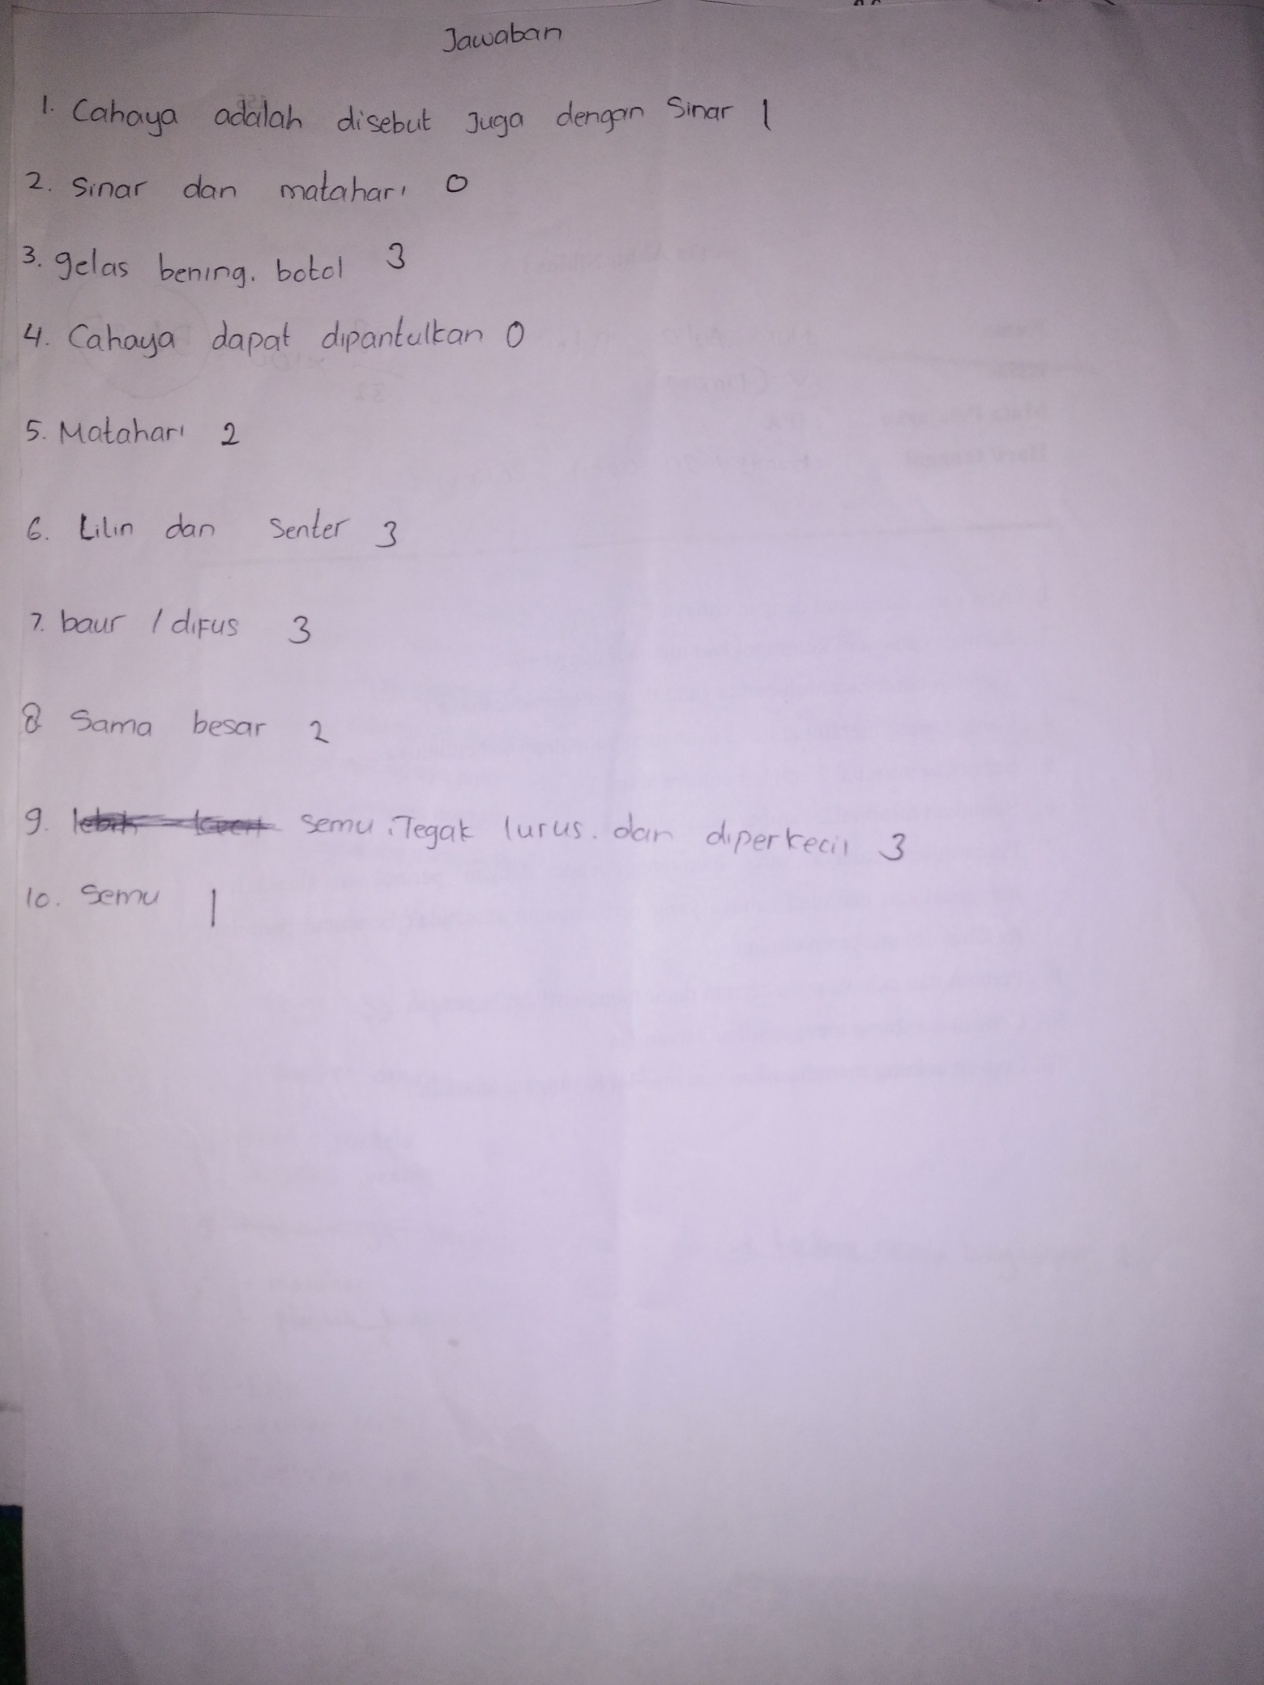 Jawaban
1. Cahaya adalah disebut Juga dengan Sinar 1
2. Sinar dan matahari 0
3. gelas bening. botol 3
4. Cahaya dapat dipantulkan 0
5. Matahari 2
6. Lilin dan Senter 3
7. baur / difus 3
8 Sama besar 2
9. semu. Tegak lurus. dan diperkecil 3
10. Semu 1